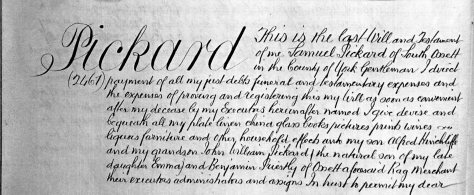 Pickard This is the last Will and Testament
of me Samuel Pickard of South Ossett
in the County of York Gentleman I direct
(2461) payment of all my just debts funeral and testamentary expenses and
the expenses of proving and registering this my Will as soon as convenient
after my decease by my Executors hereinafter named I give devise and
bequeath all my plate linen china glass books pictures prints wines
liquors furniture and other household effects unto my son Alfred Hinchliffe
and my grandson John William Pickard (the natural son of my late
daughter Emma) and Benjamin Priestly of Ossett aforesaid Rag Merchant
their executors administrators and assigns In trust to permit my dear